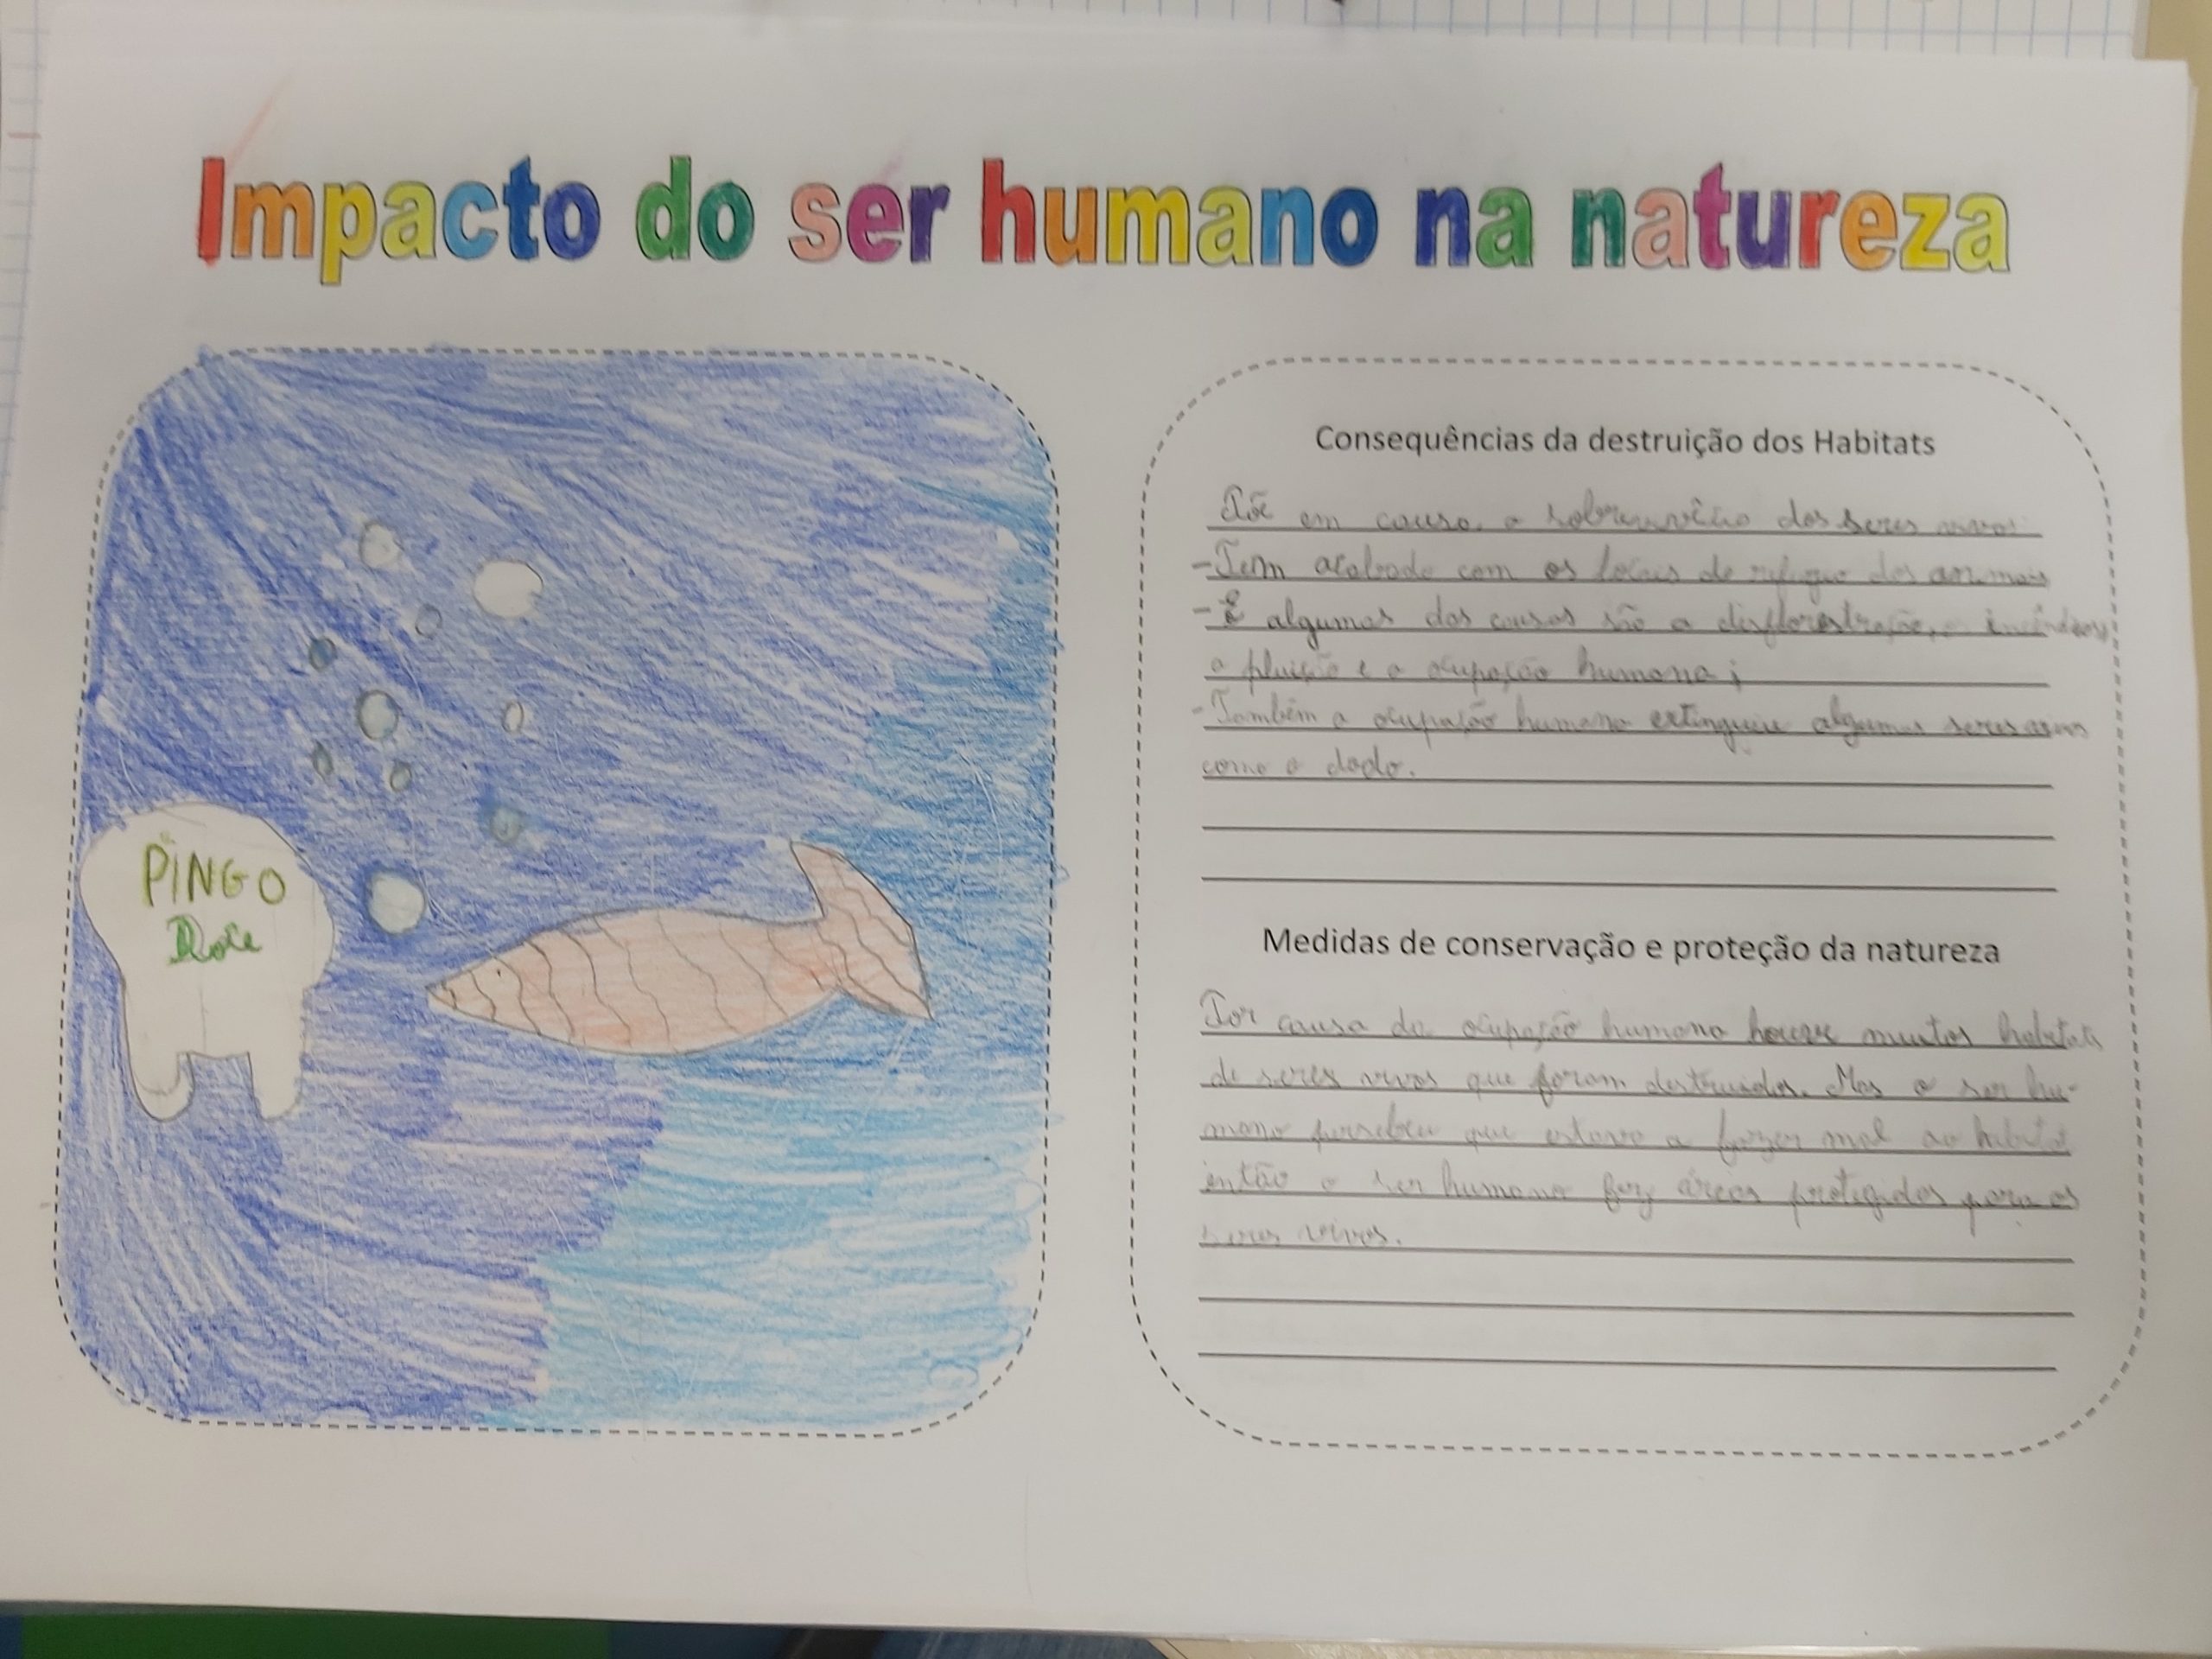 Impacto do ser humano na natureza
PINGO
Doce
Consequências da destruição dos Habitats
Põe em causa a dos seres vivos
-Tem acabado com os locais de refugio dos animais
-E algumas das causas são a disflorestração, incêndios,
a pluição e a ocupação humana;
-Também a ocupação humana extinguiu algumas seres vivos
como o dodo.
Medidas de conservação e proteção da natureza
Por causa da ocupação humana houve muitos habitats
de seres vivos que foram destruidos. Mas o ser hu-
mano percebeu que estava a fazer mal ao
então o ser humano fez áreas protegidas para os
seres vivos.